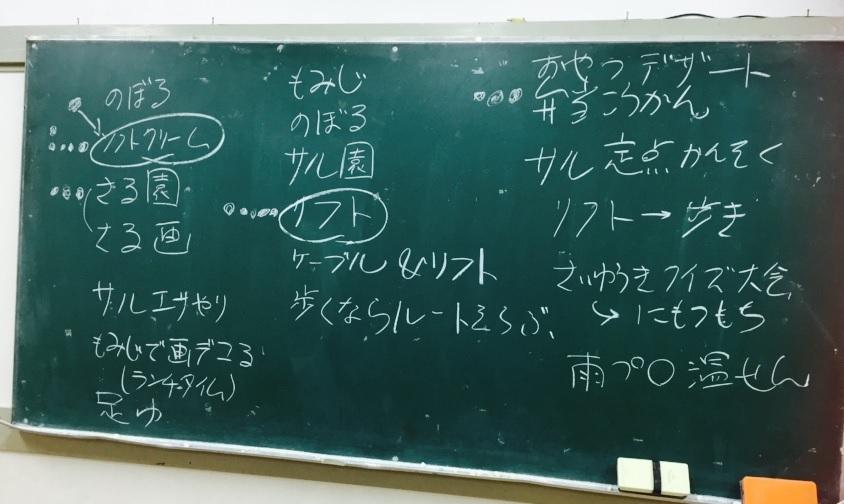 のぼる
ソフトクリーム
さる園
さる画
サルエサやり
もみじで画デコる
(ランチタイム)
足ゆ
もみじ
のぼる
サル園
リフト
ケーブル&リフト
歩くならルートえらぶ
おやつデザート
弁当こうかん
サル定点かんそく
リフト→歩き
さいゆうきクイズ大会
↳にもつもち
雨プロ温せん